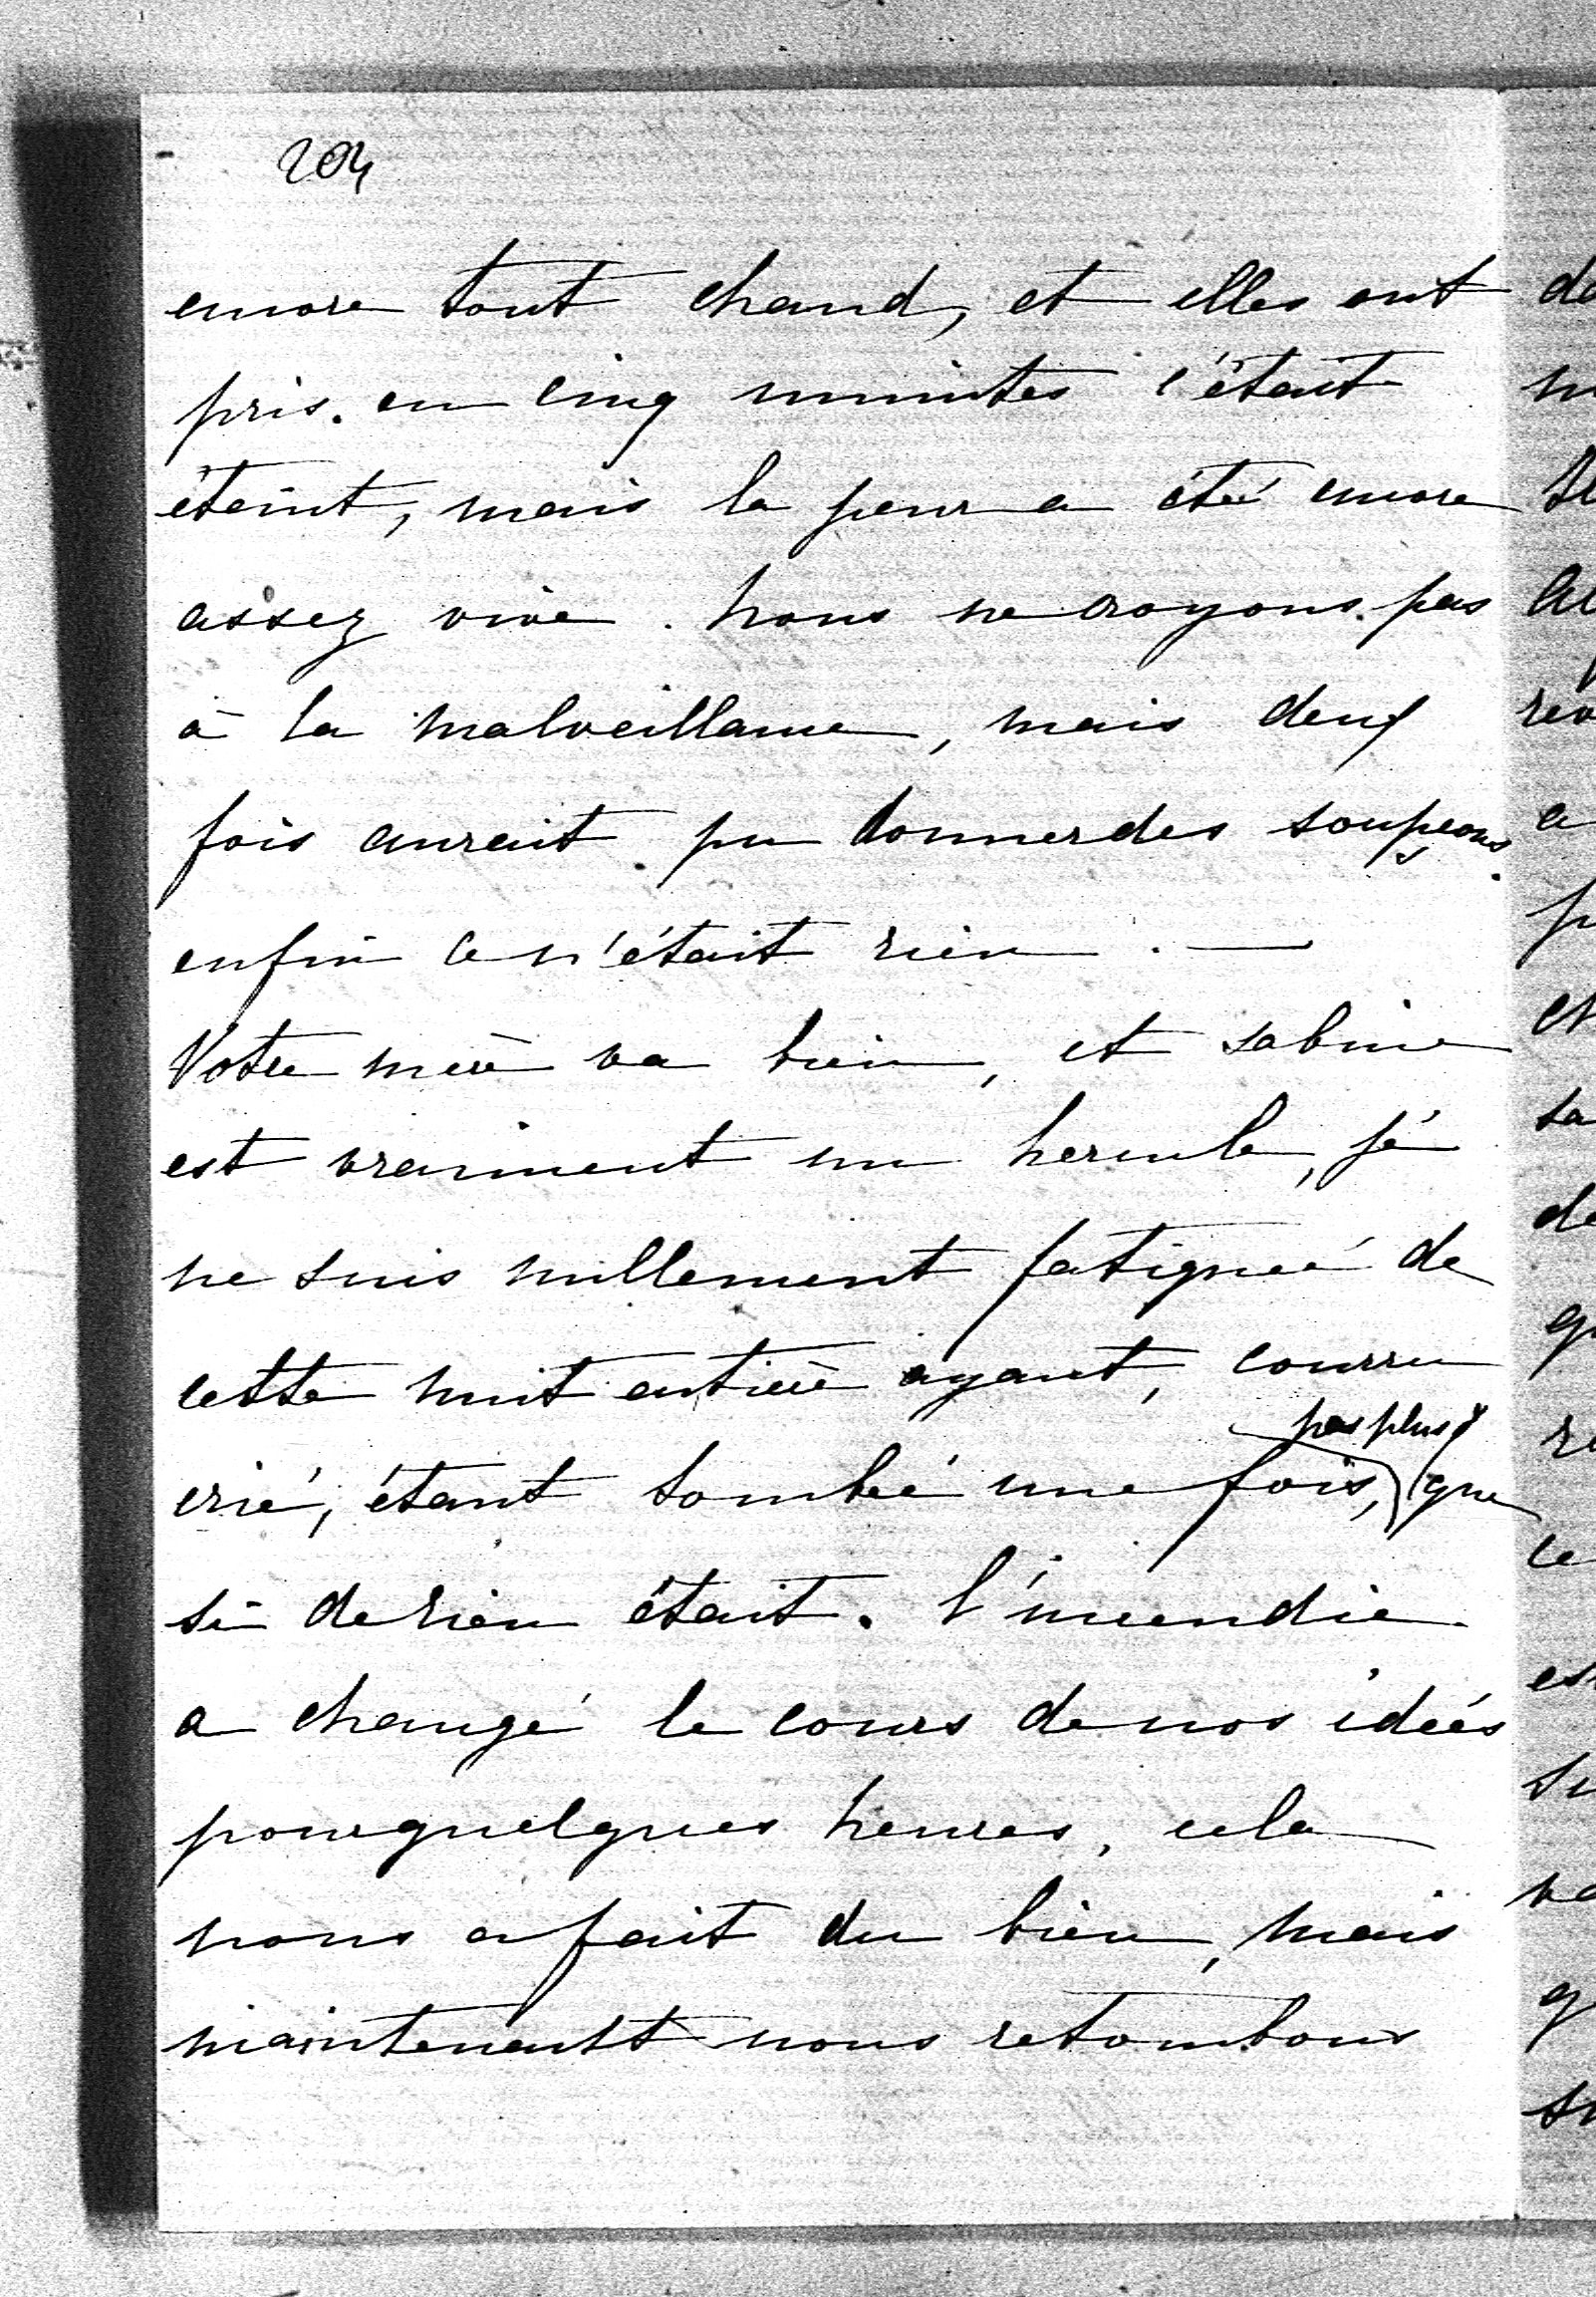 204
encore tout chaud, et elles ont
pris. en cinq minutes c'était
éteint, mais la peur a été encore
assez vive. nous ne croyons pas
à la malveillance, mais deux
fois aurait pu donner des soupçons.
enfin ce n'était rien. —
Votre mère va bien, et sabine
est vraiment un hercule, je
ne suis nullement fatiguée de
cette nuit entière ayant, courru
pas plus
crié, étant tombée une fois, que
si de rien était. l'incendie
a changé le cours de nos idées
pour quelques heures, cela
nous a fait du bien, mais
maintenant nous retombons